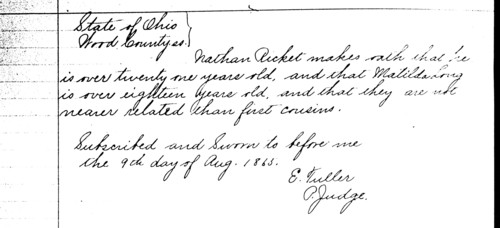 State of Ohio }
Wood County ss. }
Nathan Ricket makes oath that he
is over twenty one years old, and that Matilda Long
is over eighteen years old, and that they are not
nearer related than first cousins.
Subscribed and Sworn to before me
the 9th day of Aug. 1865.
E. Fuller
P. Judge.